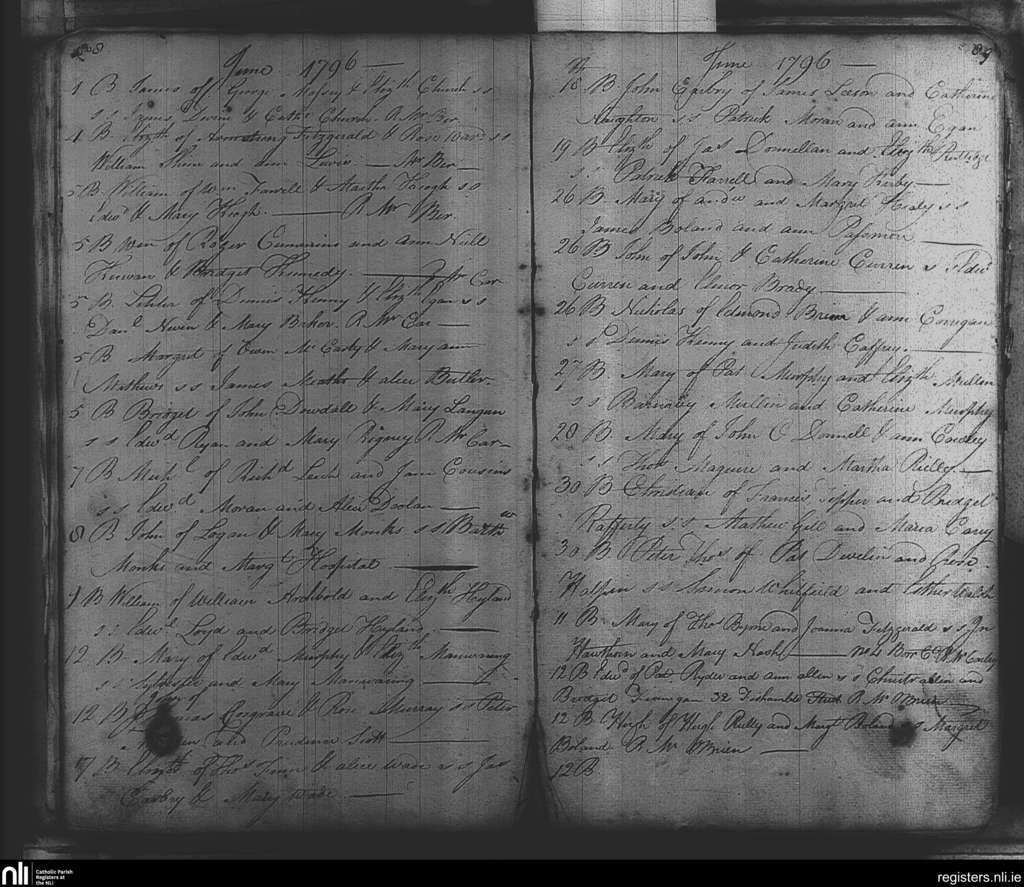 88
June 1796
1 B James of George Massey & Elizth Church s s
s s James Divine & Cathe Church R Mr Ber
4 B Elizth of Armstrong Fitzgerald & Rose Ward s s
William Shim and ann Lewis Mr Ber
5 B William of Wm Farrell & Martha Keogh s s
Edwd & Mary Keogh. R Mr Ber.
5 B Wm of Roger Cummins and Ann Niell
Kirwan & Bridget Kennedy. Car
5 B of Dennis Kenny & Elizth Egan s s
Danl & Mary R Mr Car
5 B Margret of Owen Mc & Mary ann
Mathews s s James Meaths & alice Butler
5 B Bridget of John Dowdall & Mary Langan
s s Edwd Ryan and Mary Rigney R Mr Car
7 B Michl of Richd and Jane Cousins
s s Edwd Moran and Alice Doolan
8 B John of Logan & Mary Monks s s Barthw
Monks and Margt Hospital
9 B William of William Archibold and Elizth Hyland
s s Edwd Loyd and Bridget Hyland
12 B Mary of Edwd Murphy & Elizth Manwaring
s s Sylvester and Mary Manwaring
12 B Thomas Cosgrave & Rose Murray s s Peter
and Prudence Scott
17 B Elizth of Thos & alice Wade s s Jas
& Mary Wade
89
June 1796
18 B John of James and Catherine
Naughton s s Patrick Moran and ann Egan
19 B Elizth of Jas Donnellan and Elizth Rutledge
s s Patrick Farrell and Mary Kirby
26 B. Mary of andw and Margret Healy s s
James Boland and ann
26 B John of John & Catherine Curren s s Edwd
Curren and Elinor Brady
26 B Nicholas of Edmond Brien & ann Corrigan
s s Dennis Kenny and Judeth Caffrey.
27 B. Mary of Pat Murphy and Elizth Mullin
s s Barnaby Mullin and Catherine Murphy
28 B. Mary of John O Donnell & ann Cawley
s s Thos Maguire and Martha Rielly
30 B Christian of Francis Tipper and Bridget
Rafferty s s Mathew Gill and Maria Carey
30 B Peter Thos of Pat and
Halpin s s Whitfield and Esther Walsh
11 B. Mary of Thos Byrne and Joanna Fitzgerald s s Jn
Hawthorn and Mary Nash No 4
12 B Edwd of Pat Ryder and ann allen s s Christr allen and
Bridget Finnigan 32 Fishamble Street R Mr OBrien
12 B Hugh of Hugh Rielly and Margt Boland s s Margret
Boland R Mr OBrien
12 B
nli
Catholic Parish
Registers at
the NLI
registers.nli.ie